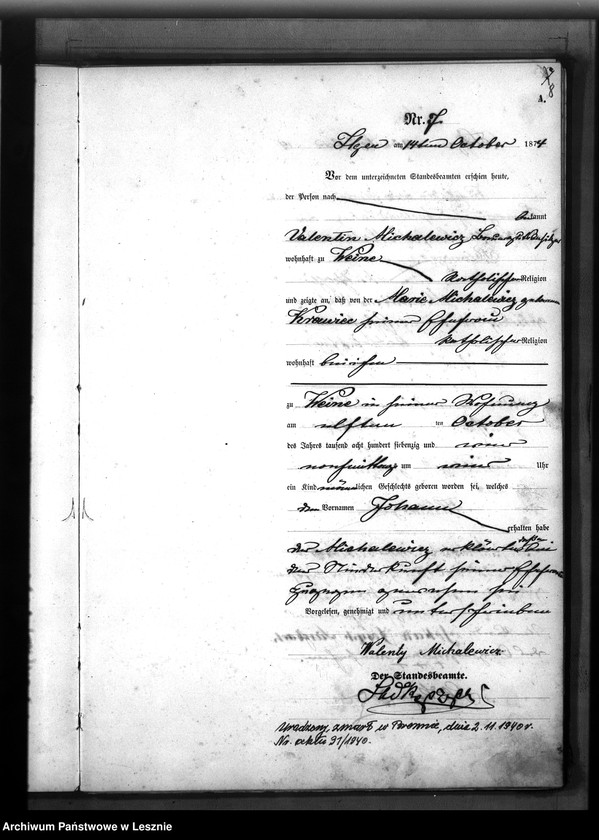 A.
Nr. 7.
Ilgen am 14ten October 1874
Vor dem unterzeichneten Standesbeamten erschien heute,
der Person nach
bekannt
Valentin Michalewicz
wohnhaft zu Weine
katholischer Religion
und zeigte an, daß von der Marie Michalewicz geborenen
Krawiec seiner Ehefrau
katholischer Religion
wohnhaft bei ihm
zu Weine in seiner Wohnung
am elften ten October
des Jahres tausend acht hundert siebenzig und vier
vormittags um Uhr
ein Kind männlichen Geschlechts geboren worden sei, welches
den Vornamen Johann
erhalten habe
der Michalewicz erklärte, daß er bei
der Niederkunft seiner Ehefrau
zugegen gewesen sei
Vorgelesen, genehmigt und unterschrieben
Walenty Michalewicz
Der Standesbeamte.
Urodzony zmarł w dnia 2.11.1940 r.
Nr. aktu 91/1940.
Archiwum Państwowe w Lesznie